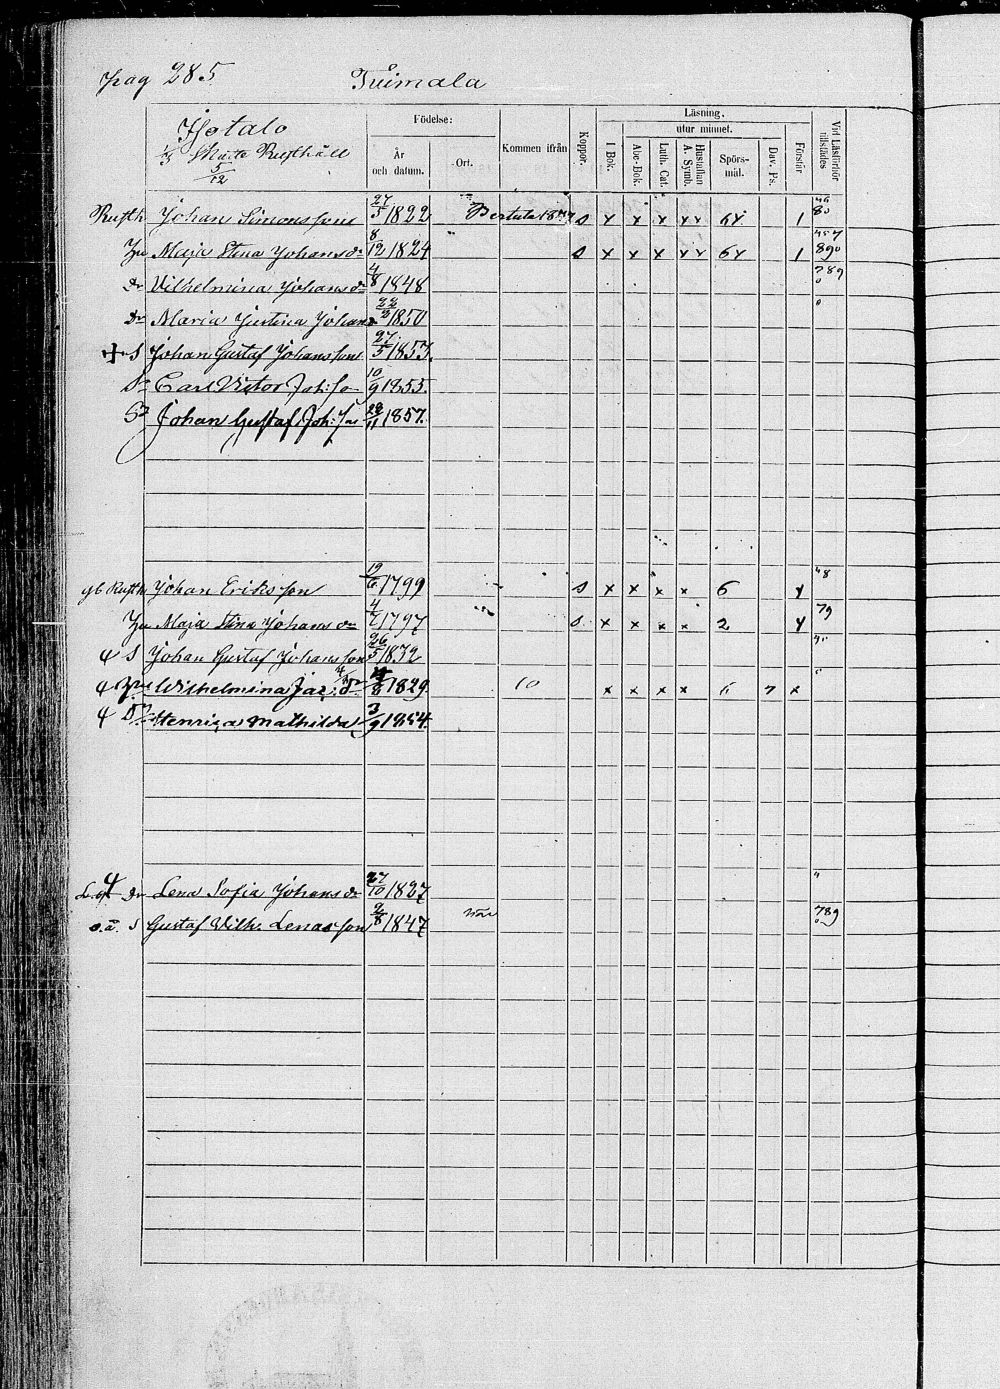 pag 285 Tuimala
Isotalo
1/3 Skatte Rusthåll
5/12
Födelse:
År och datum.
Ort.
Kommen ifrån
Koppor.
Läsning,
I Bok.
utur minnet.
Abc-Bok.
Luth. Cat.
Hustaflan A. Symb.
Spörs-mål.
Dav. Ps.
Förstår
Vid Läsförhör tillstädes
Rusth Johan Simonsson 27/5 1822 s x x x x x 6x 1
Maja Stina Johansdr 8/12 1824 s x x x x x 6x 1
dr Vilhelmina Johansdr 4/8 1848 789
Dr Maria Justina Johans 22/2 1850
+ S Johan Gustaf Johansson 27/5 1853.
Sn Carl Victor Joh:son 10/9 1855.
Sn Johan Gustaf Joh:son 1857.
gb Rusth Johan Eriksson 19/6 1799 s x x x x 6 x 48
Maja Stina Johansdr 1797 s x x x x 2 x 79
S Johan Gustaf Johansson 26/5 1832
Wilhelmina Jac:dr 1829 10 x x x x 6 7 x
Henrica Mathilda 3/9 1854.
dr Lena Sofia Johansdr 27/10 1827
o.ä. S Gustaf Wilh. Lenasson 2/8 1847 789